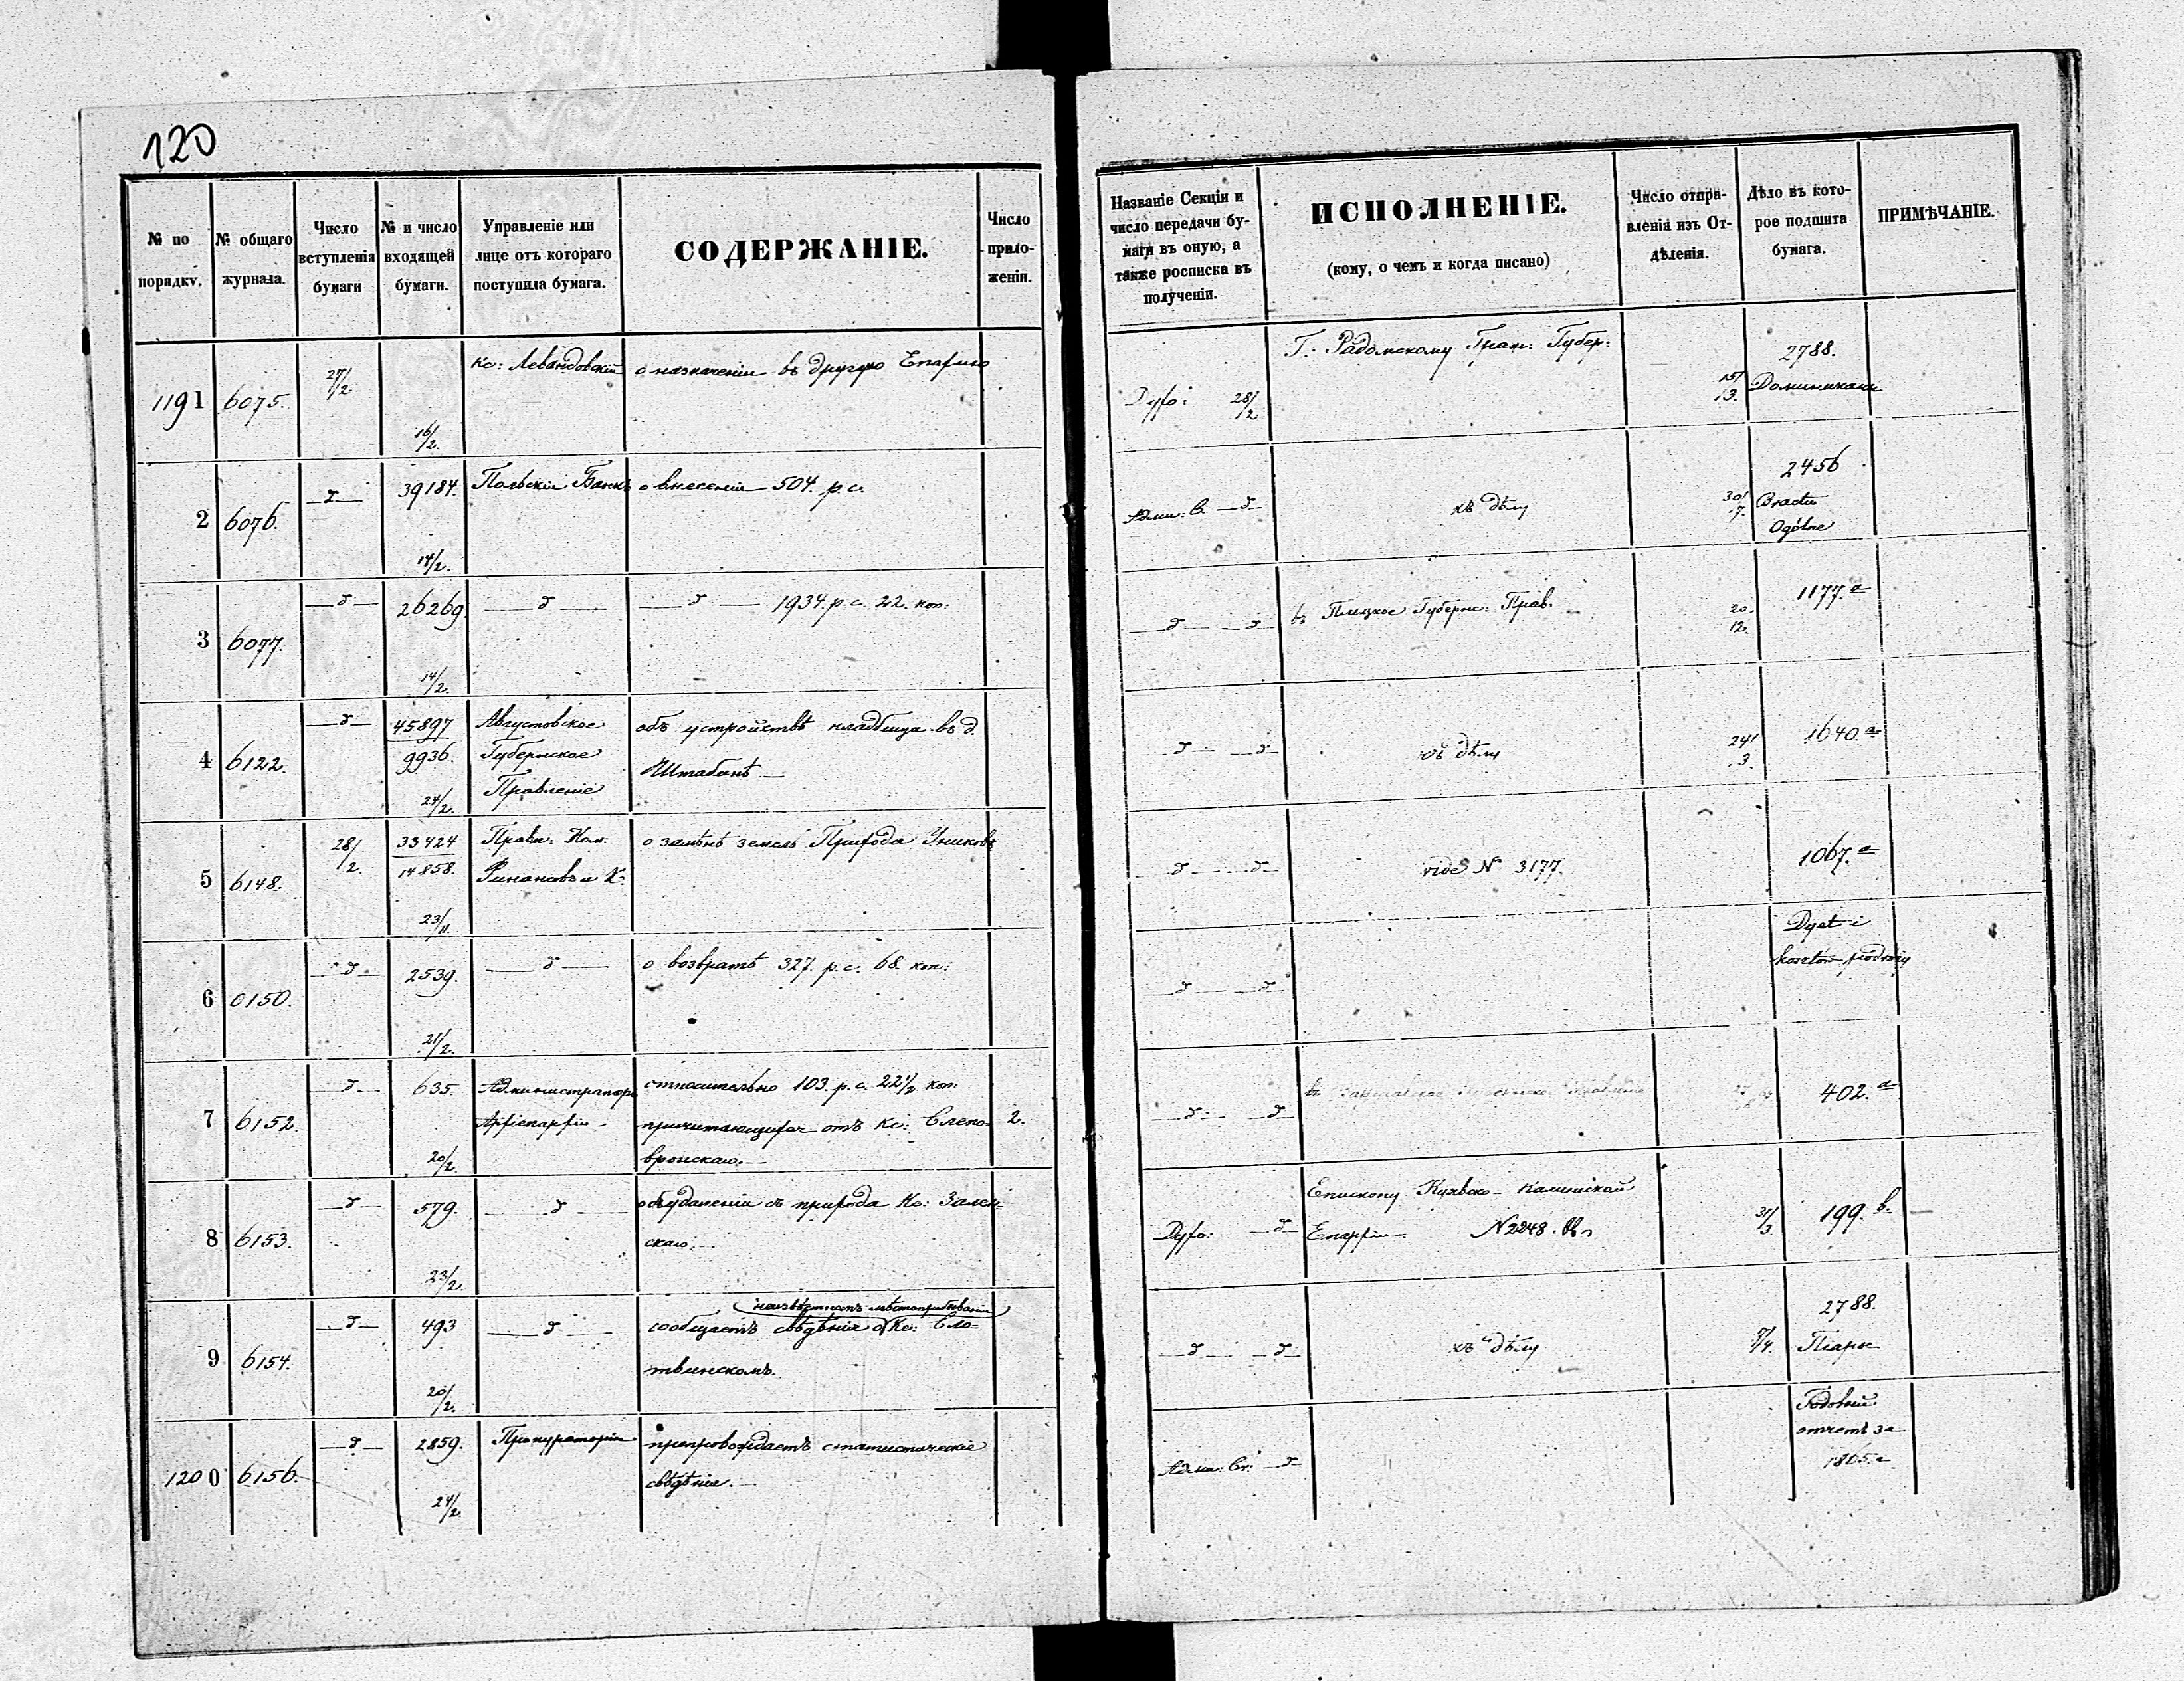 120
№ по порядку.
№ общаго журнала.
Число вступленія бумаги
№ и число входящей бумаги.
Управленіе или лице отъ котораго поступила бумага.
СОДЕРЖАНІЕ.
Число приложеніи.
Названіе Секціи и число передачи бумаги въ оную, а также росписка въ полученіи.
ИСПОЛНЕНІЕ.
(кому, о чемъ и когда писано)
Число отправленія изъ Отдѣленія.
Дѣло въ которое подшита бумага.
ПРИМѢЧАНІЕ.
1191 6075. 27/2 16/2. Кс: Левандовскій о назначеніи въ другую Епархію Духо: 28/2 Г. Радомскому Граж: Губер: 15/3. 2788. Доминикане
2 6076. —д— 39184. 14/2. Польскій Банкъ о внесеніи 504. р. с. Адми: В. —д— къ дѣлу 30/7. 2456 Bractw Ogólne
3 6077. —д— 26269. 14/2. —д— —д— 1934. р. с. 22. коп: —д— —д— въ Плоцкое Губернс: Прав. 20/12. 1177. a
4 6122. —д— 45897 9936. 24/2. Августовское Губернское Правленіе объ устройствѣ кладбища въ д. Штабинѣ — —д— —д— къ дѣлу 24/3. 1640. a
5 6148. 28/2. 33424 14858. 23/11. Правит: Ком: Финансовъ и К. о замѣнѣ земель Прихода Униковъ —д— —д— vide S N 3177. 1067. a
6 6150. —д— 2539. 21/2. —д— о возвратѣ 327. р. с. 68. коп: —д— —д— Dyet i kosztów podroży
7 6152. —д— 635. 20/2 Администраторъ Архіепархіи - относительно 103. р. с. 22 1/2 коп: причитающихся отъ Кс: Слеповронскаго. — 2. —д— —д— въ Правленіе 402. a
8 6153. —д— 579. 23/2. —д— объ удаленіи съ прихода Кс: Залескаго. — Духо: —д— Епископу Куявско-Калишской Епархіи N 2248. 31/3. 199. b.
9 6154. —д— 493 20/2. —д— сообщаетъ свѣдѣнія о неизвѣстномъ мѣстопребываніи Кс: Слотвинскомъ. —д— —д— къ дѣлу 7/4. 2788. Піары
1200 6156. —д— 2859. 24/2. Прокураторія препровождаетъ статистическіе свѣдѣнія. — Адми: Св: —д— Годовый отчетъ за 1865. г.